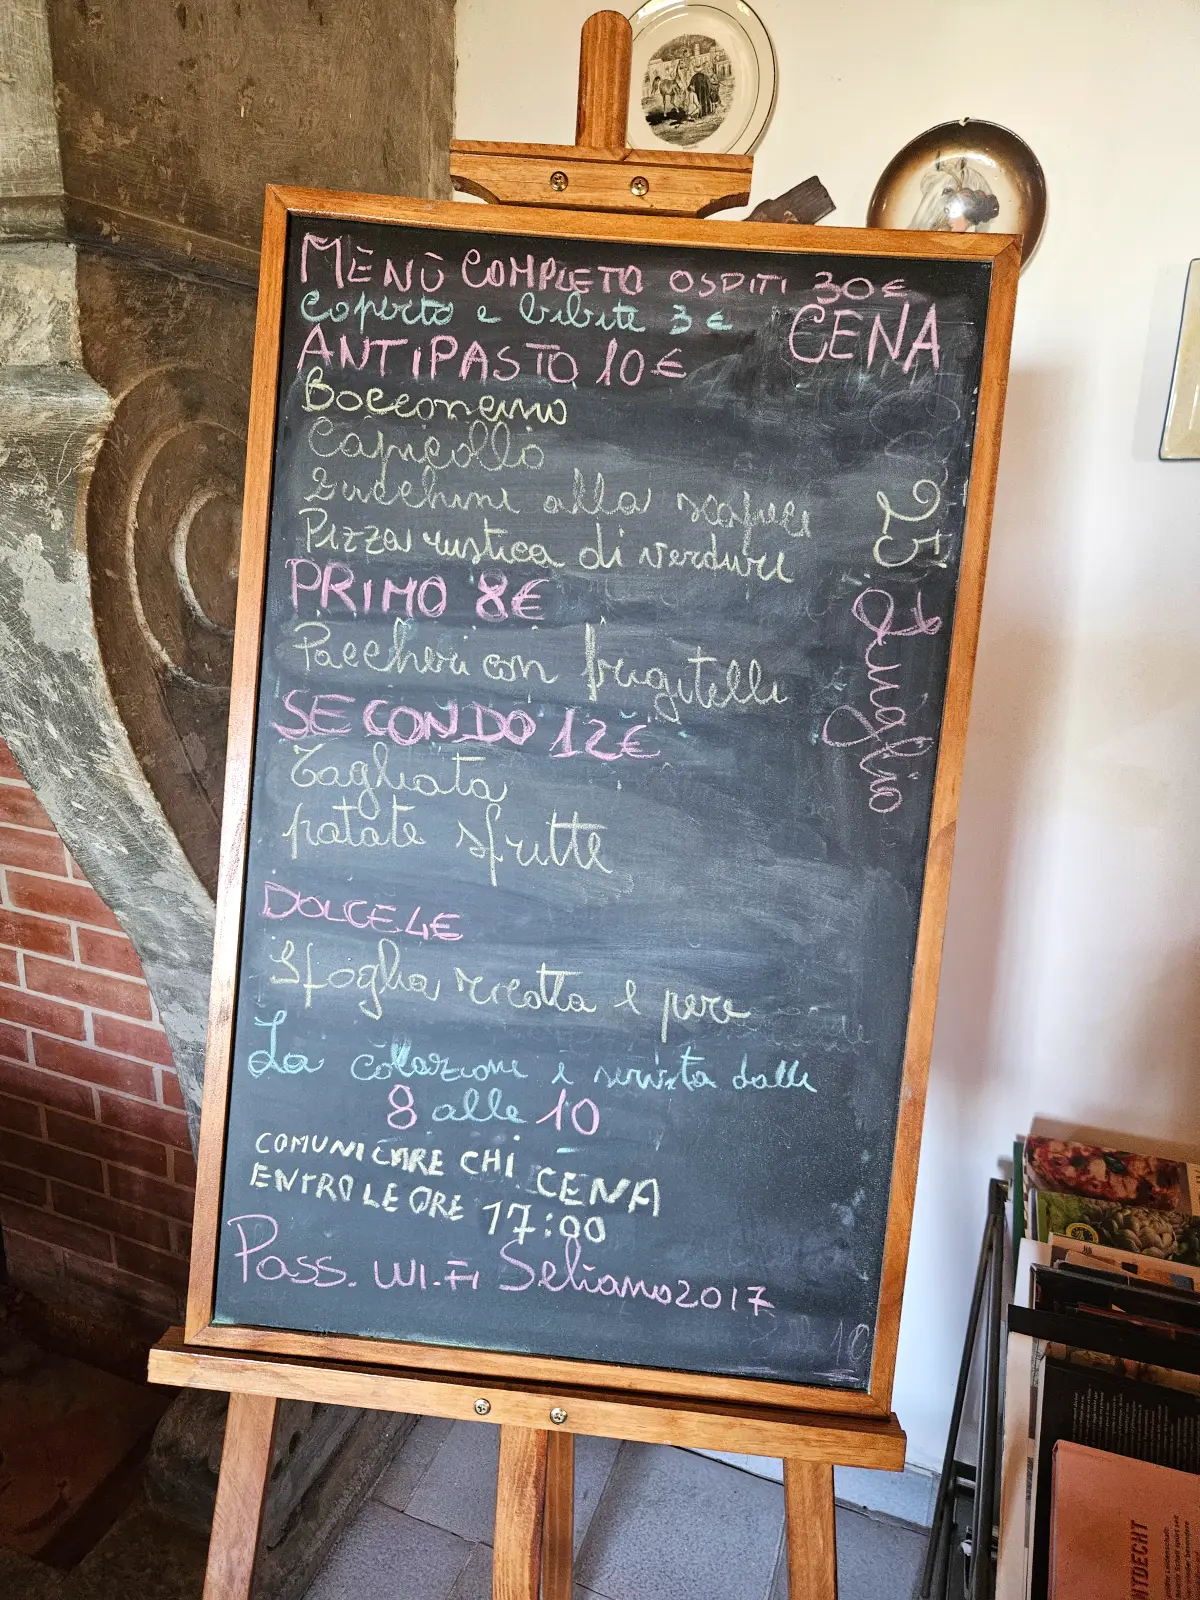 MENÙ COMPLETO OSPITI 30€
Coperto e bibite 3€
CENA
ANTIPASTO 10€
Bocconcino
Capicollo
Zucchine alla scapece
Pizza rustica di verdure
25 Luglio
PRIMO 8€
Paccheri con frigitelli
SECONDO 12€
Tagliata
patate sfritte
DOLCE 4€
Sfoglia ricotta e pere
La colazione è servita dalle
8 alle 10
COMUNICARE CHI CENA
ENTRO LE ORE 17:00
Pass. WI-FI Seliano2017
10
NTDECHT